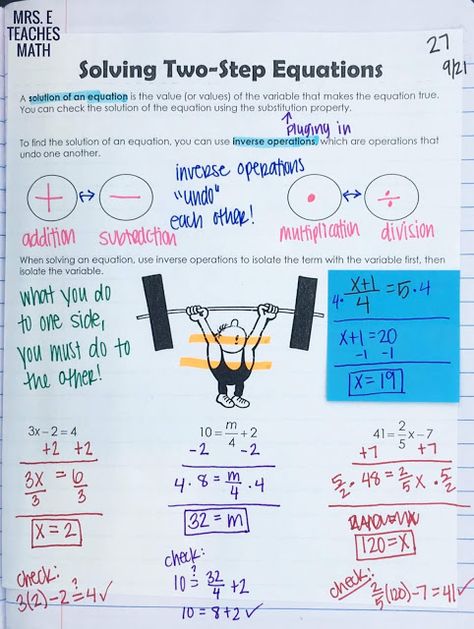 MRS. E
TEACHES
MATH
27
9/21
Solving Two-Step Equations
A solution of an equation is the value (or values) of the variable that makes the equation true.
You can check the solution of the equation using the substitution property.
↑ Pluging in
To find the solution of an equation, you can use inverse operations, which are operations that
undo one another.
inverse operations
"undo"
each other!
+ ↔ −
• ↔ ÷
addition subtraction multiplication division
When solving an equation, use inverse operations to isolate the term with the variable first, then
isolate the variable.
what you do
to one side,
you must do to
the other!
4 · (x+1)/4 = 5 · 4
x+1 = 20
-1 -1
x = 19
3x − 2 = 4
+2 +2
3x/3 = 6/3
x = 2
check:
3(2) − 2 ≟ 4 ✓
10 = m/4 + 2
-2 -2
4 · 8 = m/4 · 4
32 = m
check:
10 ≟ 32/4 + 2
10 = 8 + 2 ✓
41 = 2/5 x − 7
+7 +7
5/2 · 48 = 2/5 x · 5/2
120 = x
check:
2/5 (120) − 7 = 41 ✓